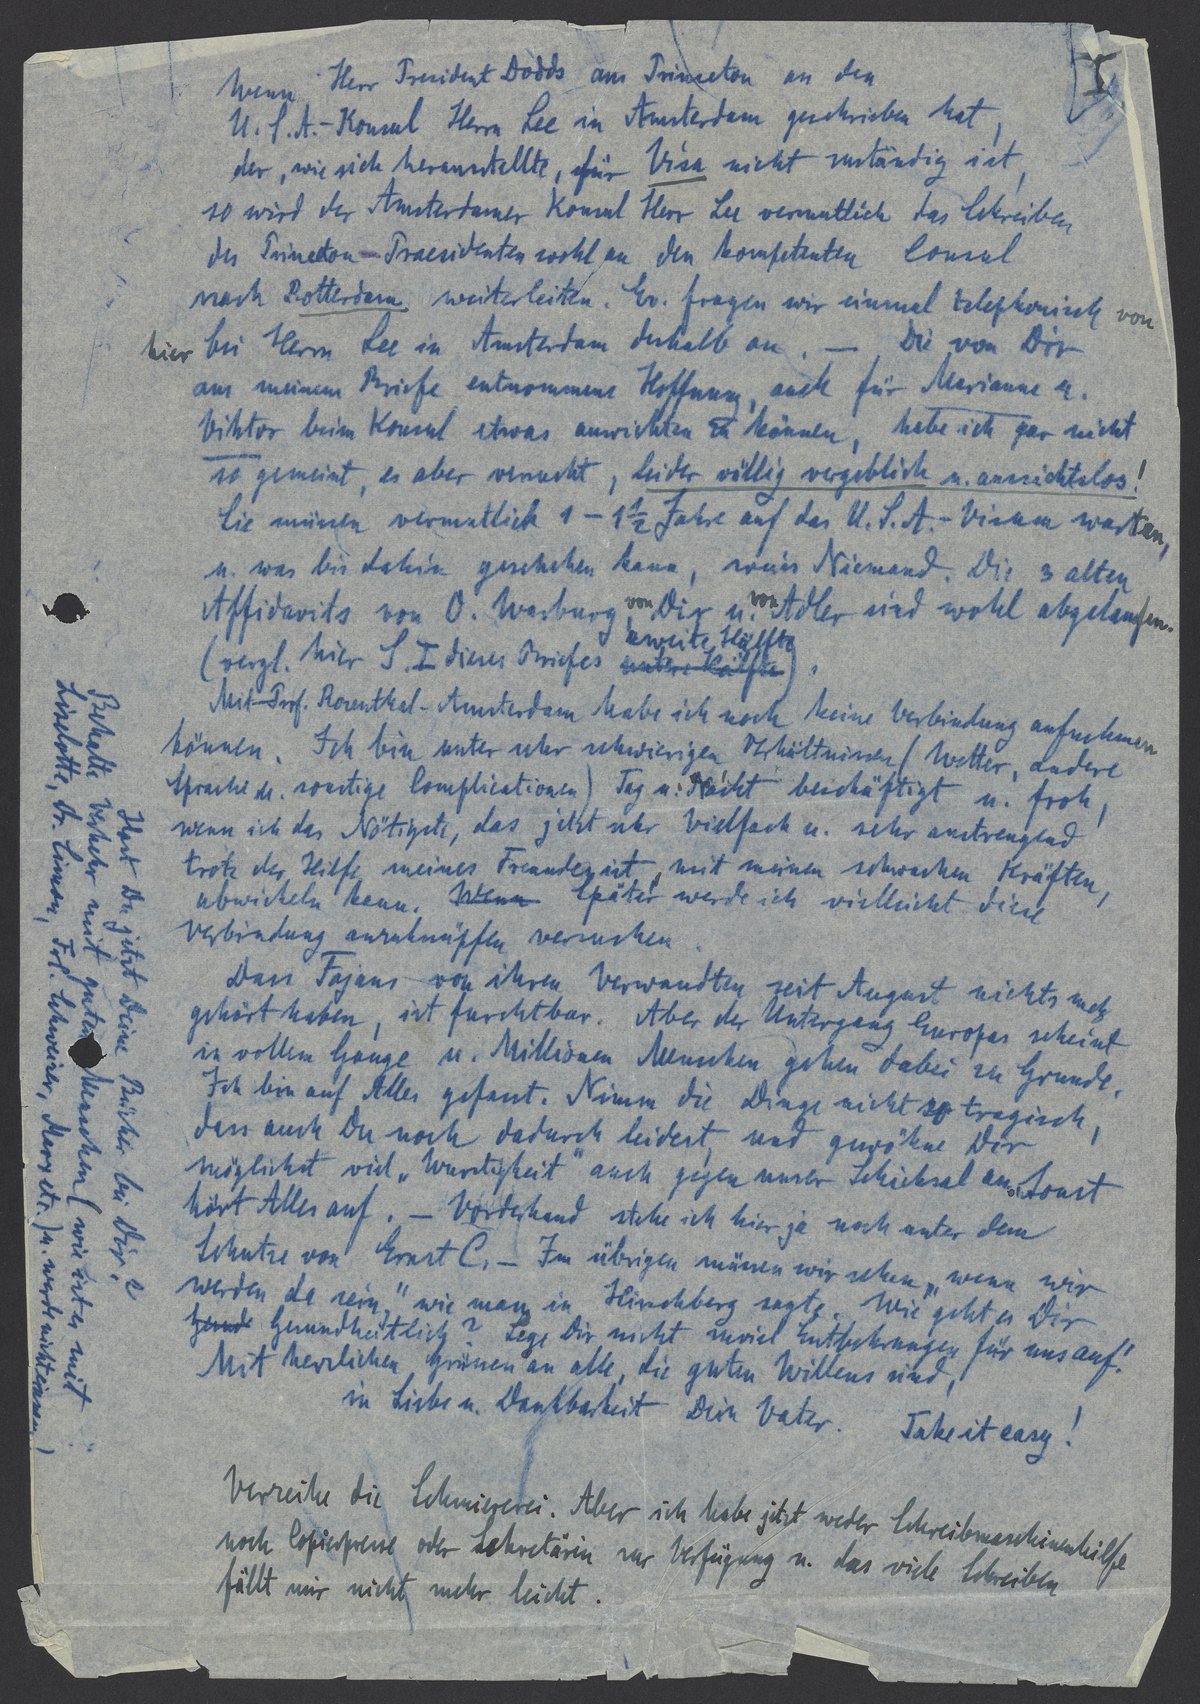 Wenn Herr President Dodds aus Princeton an den
U.S.A.-Konsul Herrn Lee in Amsterdam geschrieben hat,
der, wie sich herausstellte, für Visa nicht zuständig ist,
so wird der Amsterdamer Konsul Herr Lee vermutlich das Schreiben
des Princeton-Praesidenten wohl an den kompetenten Consul
nach Rotterdam weiterleiten. Ev. fragen wir einmal telephonisch von
hier bei Herrn Lee in Amsterdam deshalb an. — Die von Dir
aus meinem Briefe entnommene Hoffnung, auch für Marianne u.
Viktor beim Konsul etwas auswirken zu können, habe ich gar nicht
so gemeint, es aber versucht, leider völlig vergeblich u. aussichtslos!
Sie müssen vermutlich 1 – 1½ Jahre auf das U.S.A.-Visum warten,
u. was bis dahin geschehen kann, weiss Niemand. Die 3 alten
Affidavits von O. Warburg, von Dir u. von Adler sind wohl abgelaufen.
(vergl. hier S. I dieses Briefes untere Hälfte zweite Hälfte).
Mit Prof. Rosenthal-Amsterdam habe ich noch keine Verbindung aufnehmen
können. Ich bin unter sehr schwierigen Verhältnissen (Wetter, andere
Sprache u. sonstige Complicationen) Tag u. Nacht beschäftigt u. froh,
wenn ich das Nötigste, das jetzt sehr vielfach u. sehr anstrengend
trotz der Hilfe meines Freundes ist, mit meinen schwachen Kräften,
abwickeln kann. Wenn Später werde ich vielleicht diese
Verbindung anzuknüpfen versuchen.
Dass Fajans von ihren Verwandten seit August nichts mehr
gehört haben, ist furchtbar. Aber der Untergang Europas scheint
in vollem Gange u. Millionen Menschen gehen dabei zu Grunde.
Ich bin auf Alles gefasst. Nimm die Dinge nicht so tragisch,
dass auch Du noch dadurch leidest, und gewöhne Dir
möglichst viel „Wurstigkeit" auch gegen unser Schicksal an. Sonst
hört Alles auf. — Vorderhand stehe ich hier ja noch unter dem
Schutze von Ernst C. — Im übrigen müssen wir sehen „wenn wir
werden da sein," wie man in Hirschberg sagte. Wie geht es Dir
Gesundheitlich? Lege Dir nicht zuviel Entbehrungen für uns auf!
Mit herzlichen Grüssen an alle, die guten Willens sind,
in Liebe u. Dankbarkeit Dein Vater. Take it easy!
Verzeihe die Schmiererei. Aber ich habe jetzt weder Schreibmaschinenhilfe
noch Copierpresse oder Sekretärin zur Verfügung u. das viele Schreiben
fällt mir nicht mehr leicht.
Hast Du jetzt Deine Bücher bei Dir?
Behalte Verkehr mit guten Menschen (wie ist es mit
Liselotte, Dr. Simon, Frl. Schweizer, Marx etc.) u. werde nicht einsam!